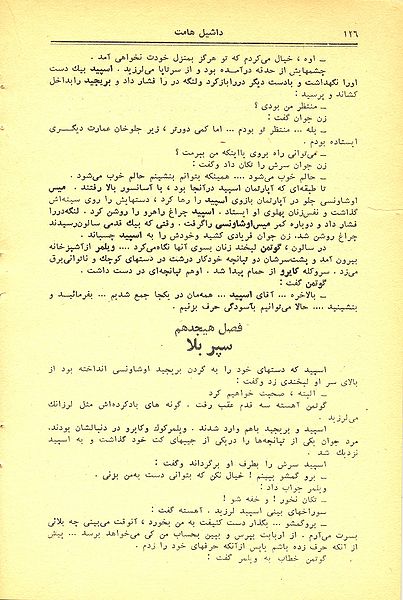 ۱۲۶
داشیل هامت
ـ اوه ، خیال می‌کردم که تو هرگز بمنزل خودت نخواهی آمد .
چشمهایش از حدقه درآمـده بود و از سرتاپا می‌لرزید . اسپید بیك دست
اورا نگهداشت و بادست دیگر دررابازکرد ولنگه در را فشار داد و بریجید رابداخل
کشاند و پرسید :
ـ منتظر من بودی ؟
زن جوان گفت :
ـ بله ... منتظر تو بودم ... اما کمی دورتر ، زیر جلوخان عمارت دیگـــری
ایستاده بودم .
ـ می‌توانی راه بروی یااینکه من ببرمت ؟
زن جوان سرش را تکان داد وگفت :
ـ حالم خوب می‌شود .... همینکه بتوانم بنشینم حالم خوب می‌شود .
تا طبقه‌ای که آپارتمان اسپید درآنجا بود ، با آسانسور بالا رفتند . میس
اوشاونسی جلو در آپارتمان بازوی اسپید را رها کرد ، دستهایش را روی سینه‌اش
گذاشت و نفس‌زنان پهلوی او ایستاد . اسپید چراغ راهرو را روشن کرد . لنگه‌دررا
فشار داد و دوباره کمر میس‌اوشاونسی راگرفت . وقتی که بیك قدمی سالون‌رسیدند
چراغ روشن شد. زن جوان فریادی کشید وخودش را به اسپید چسباند .
در سالون ، گوتمن لبخند زنان بسوی آنها نگاه‌می‌کرد .... ویلمر ازآشپزخانه
بیرون آمد و پشت‌سرشان دو تپانچه خودکار درشت در دستهای کوچك و ناتوانی‌برق
می‌زد . سروکله کایرو از حمام پیدا شد . اوهم تپانچه‌ای در دست داشت .
گوتمن گفت :
ـ بالاخره ... آقای اسپید ... همه‌مان در یکجا جمع شدیم ... بفرمائیـد و
بنشینید .... حالا می‌توانیم بآسودگی حرف بزنیم .
فصل هیجدهم
سپر بلا
اسپید که دستهای خود را به گردن بریجید اوشاونسی انداخته بود از
بالای سر او لبخندی زد وگفت :
ـ البته ، صحبت خواهیم کرد
گوتمن آهسته سه قدم عقب رفت . گونه های بادکرده‌اش مثل لرزانك
می‌لرزید .
اسپید و بریجید باهم وارد شدند . ویلمرکوك وکایرو در دنبالشان بودند.
مرد جوان یکی از تپانچه‌ها را دریکی از جیبهای کت خود گذاشت و به اسپید
نزدیك شد .
اسپید سرش را بطرف او برگرداند وگفت :
ـ برو گمشو ببینم ! خیال نکن که بتوانی دست به‌من بزنی .
ویلمر جواب داد :
ـ تکان نخور ! و خفه شو !
سوراخهای بینی اسپید لرزید . آهسته گفت :
ـ بروگمشو ... بگذار دست کثیفت به من بخورد ، آنوقت می‌بینی چه بلائی
بسرت می‌آرم . از اربابت بپرس و ببین بحساب من کی می‌خواهد برسد ... پیش
از آنکه حرف زده باشم یاپس ازآنکه حرفهای خود را زدم .
گوتمن خطاب به ویلمر گفت :